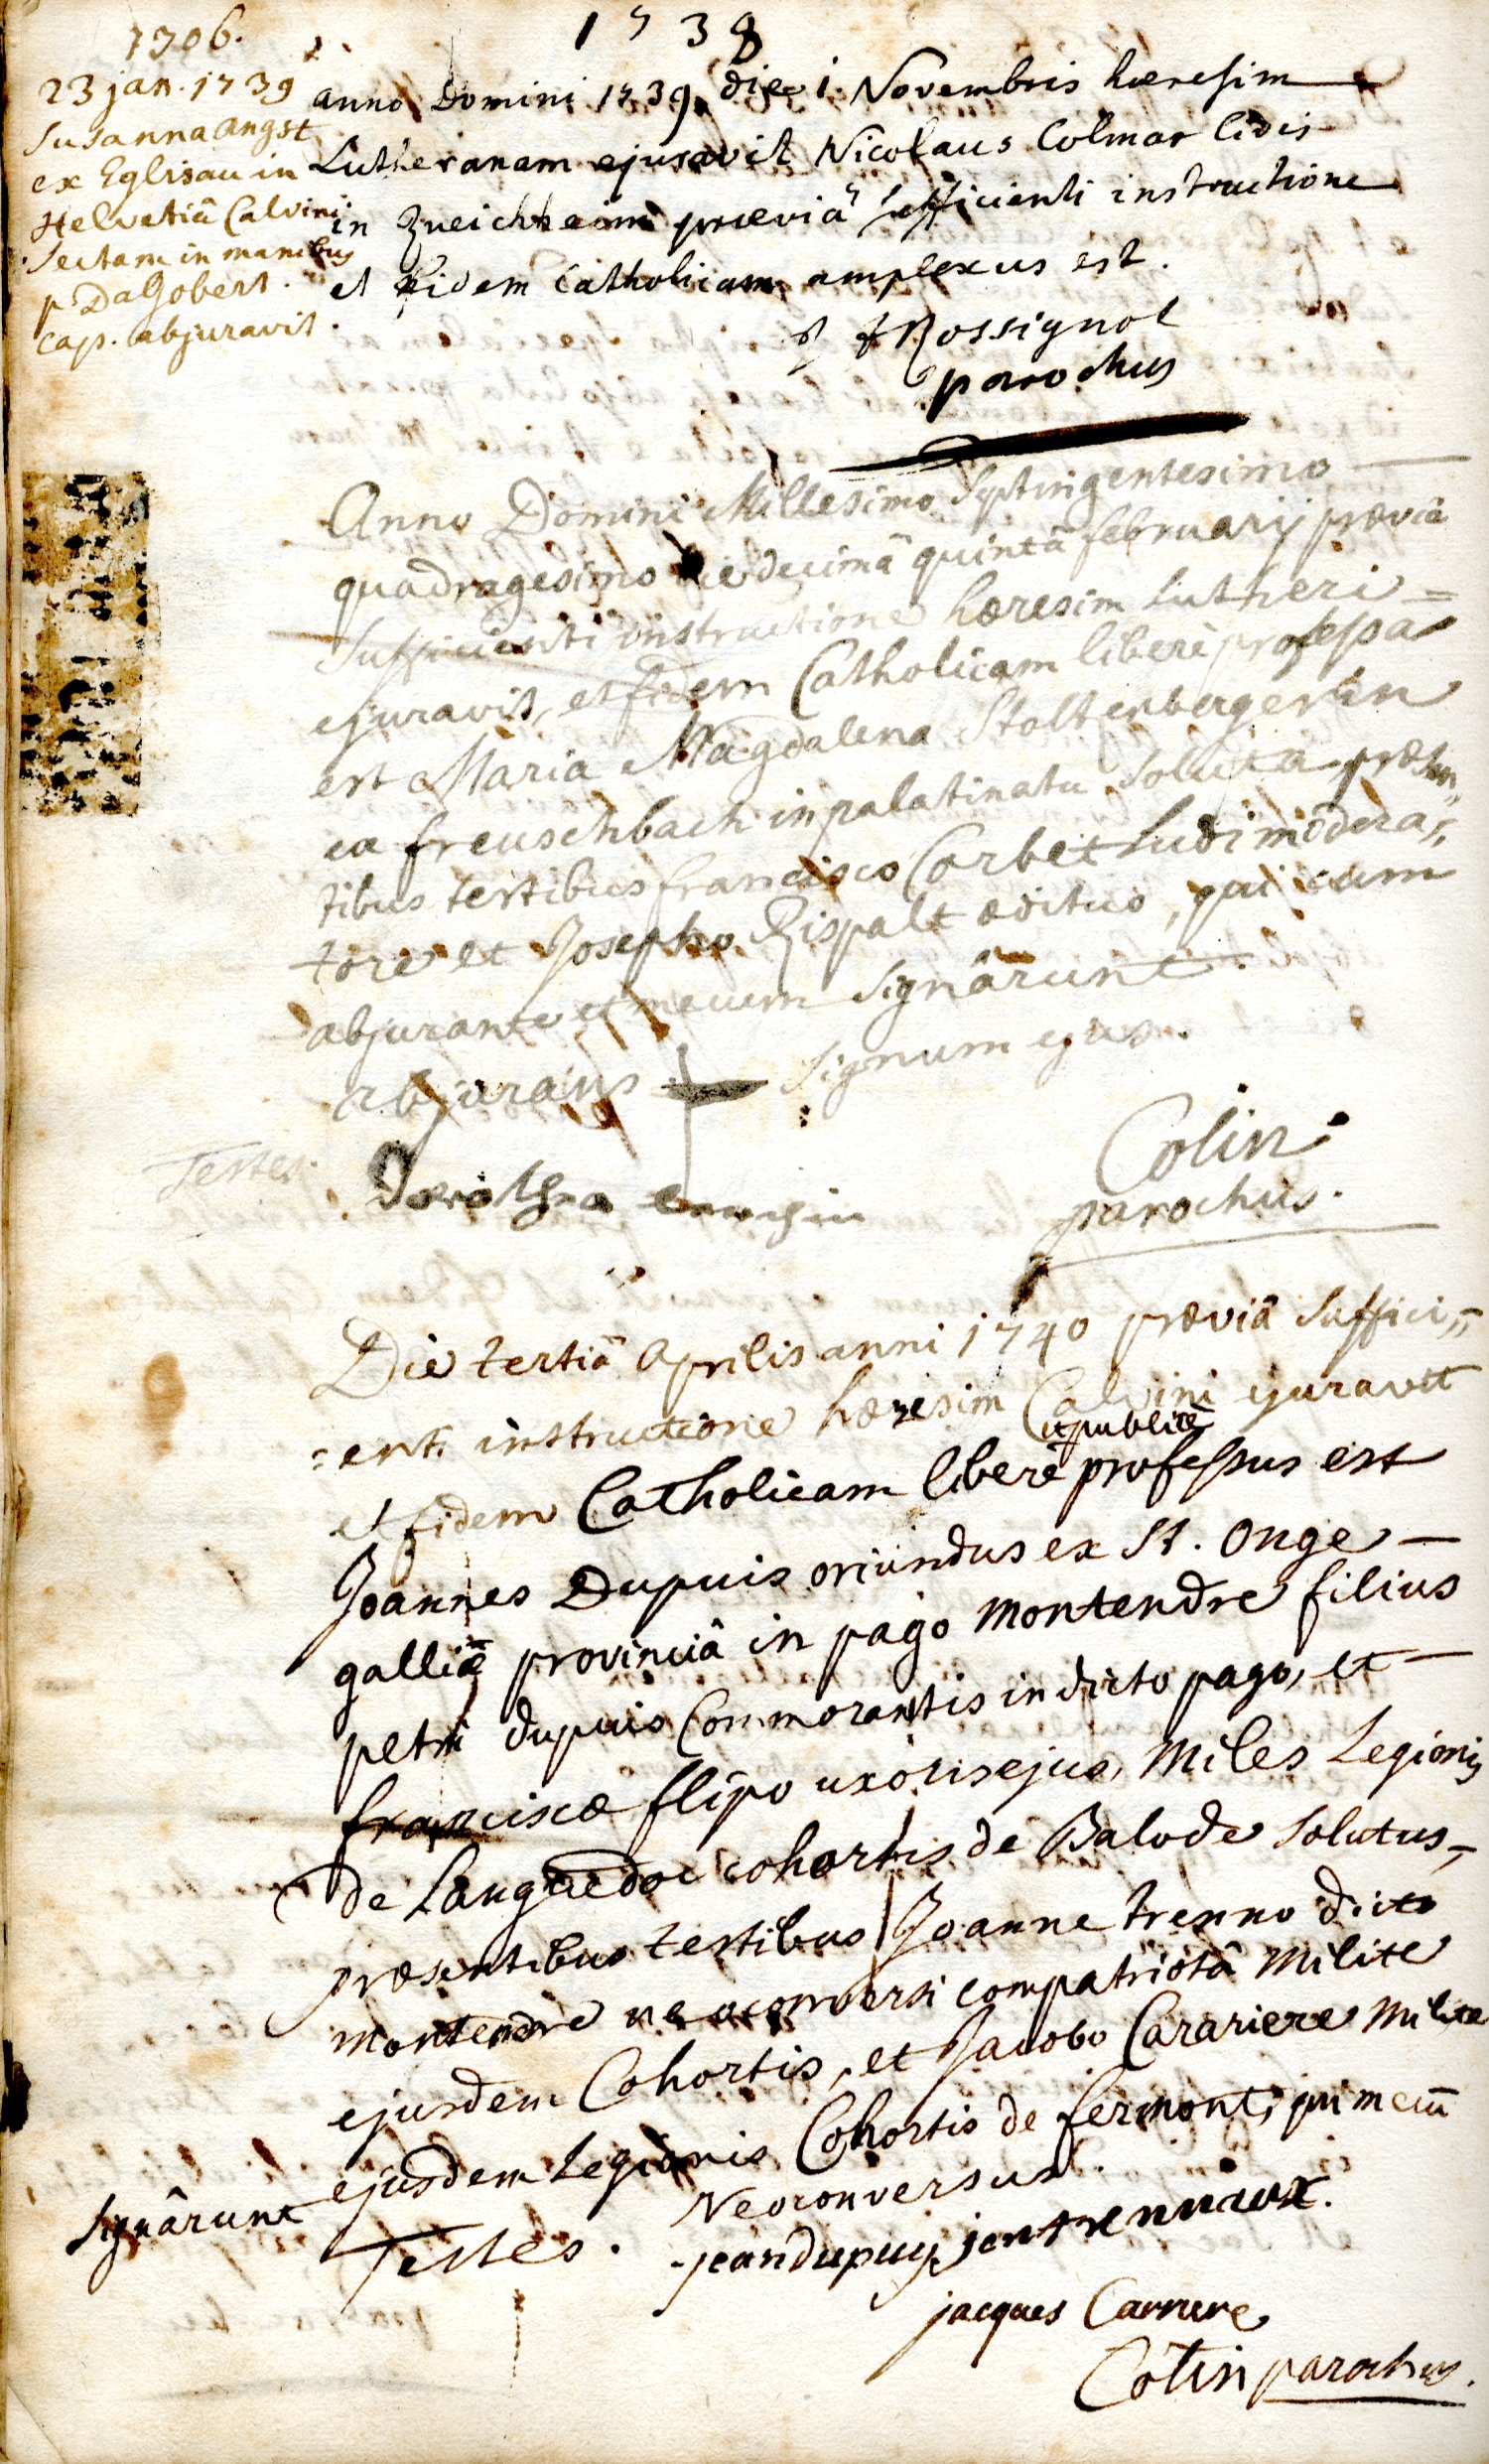 1738
1706.
23 jan. 1739
Susanna Angst
ex Eglisau in
Helvetiâ Calvini
Sectam in manibus
p Dagobert.
cap. abjuravit.
anno Domini 1739 die 1. Novembris hæresim
Lutheranam ejuravit Nicolaus Colmar Civis
in præviâ sufficienti instructione
et fidem Catholicam amplexus est.
Rossignol
parochus
Anno Domini Millesimo Septingentesimo
quadragesimo die decimâ quintâ februarij præviâ
Sufficienti instructione hæresim Lutheri =
ejuravit, et fidem Catholicam liberè professa
est Maria Magdalena Stoltenbergerin
ex freuschbach in palatinatu Soluta præsen,,
tibus testibus francisco Corbet Ludimodera,,
tore et Josepho Rispalt ædituo, qui cum
abjurante et mecum Signârunt.
abjurans + Signum ejus.
Testes. Colin
parochus.
Die tertiâ Aprilis anni 1740 præviâ Suffici,,
=enti instructione hæresim Calvini ejuravit
et publicè
et fidem Catholicam liberè professus est
Joannes Dupuis oriundus ex St. Onge —
galliæ provinciâ in pago Montendre filius
petri dupuis Commorantis in dicto pago, et —
franciscæ flipo uxoris ejus, Miles Legionis
de Languedoc cohortis de Balode Solutus,
præsentibus testibus Joanne trenno dicto
Montendre neoconversi compatriotâ Milite
ejusdem Cohortis, et Jacobo Carariere Milite
ejusdem Legionis Cohortis de fermont, qui mecū
Signârunt
Neoconversus.
Testes. jean dupuy
jacques Carrere
Colin parochus.